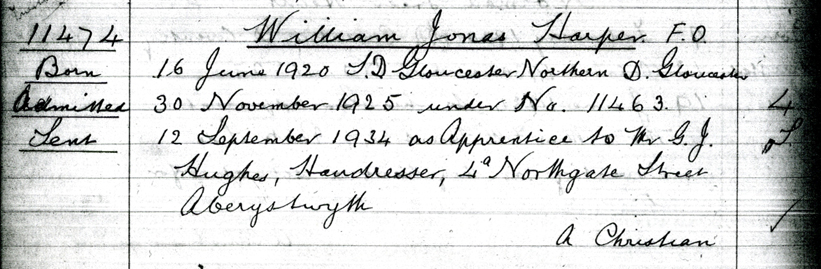 11474 William Jonas Harper F.O.
Born 16 June 1920 S.D. Gloucester Northern D. Gloucester
Admitted 30 November 1925 under No. 11463. 4
Sent 12 September 1934 as Apprentice to Mr G. J.
Hughes, Hairdresser, 4a Northgate Street
Aberystwyth
A Christian